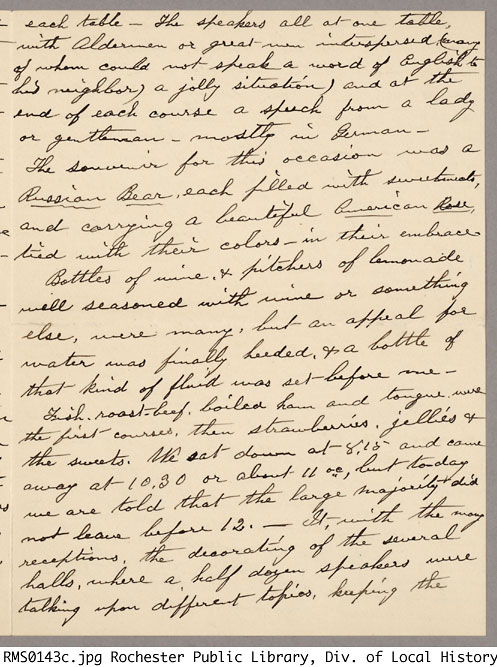 each table – The speakers all at one table,
with Aldermen or great men interspersed (many
of whom could not speak a word of English to
his neighbor) a jolly situation) and at the
end of each course a speech from a lady
or gentleman – mostly in German –
The souvenir for this occasion was a
Russian Bear, each filled with sweetmeats,
and carrying a beautiful American Rose,
tied with their colors – in their embrace
Bottles of wine, & pitchers of lemonade
well seasoned with wine or something
else, were many, but an appeal for
water was finally heeded, & a bottle of
that kind of fluid was set before me –
Fish, roast-beef, boiled ham and tongue, were
the first courses, then strawberries, jellies &
the sweets. We sat down at 8,15 and came
away at 10,30 or about 11 oc, but today
we are told that the large majority did
not leave before 12. — It, with the many
receptions, the decorating of the several
halls, where a half dozen speakers were
talking upon different topics, keeping the
RMS0143c.jpg Rochester Public Library, Div. of Local History